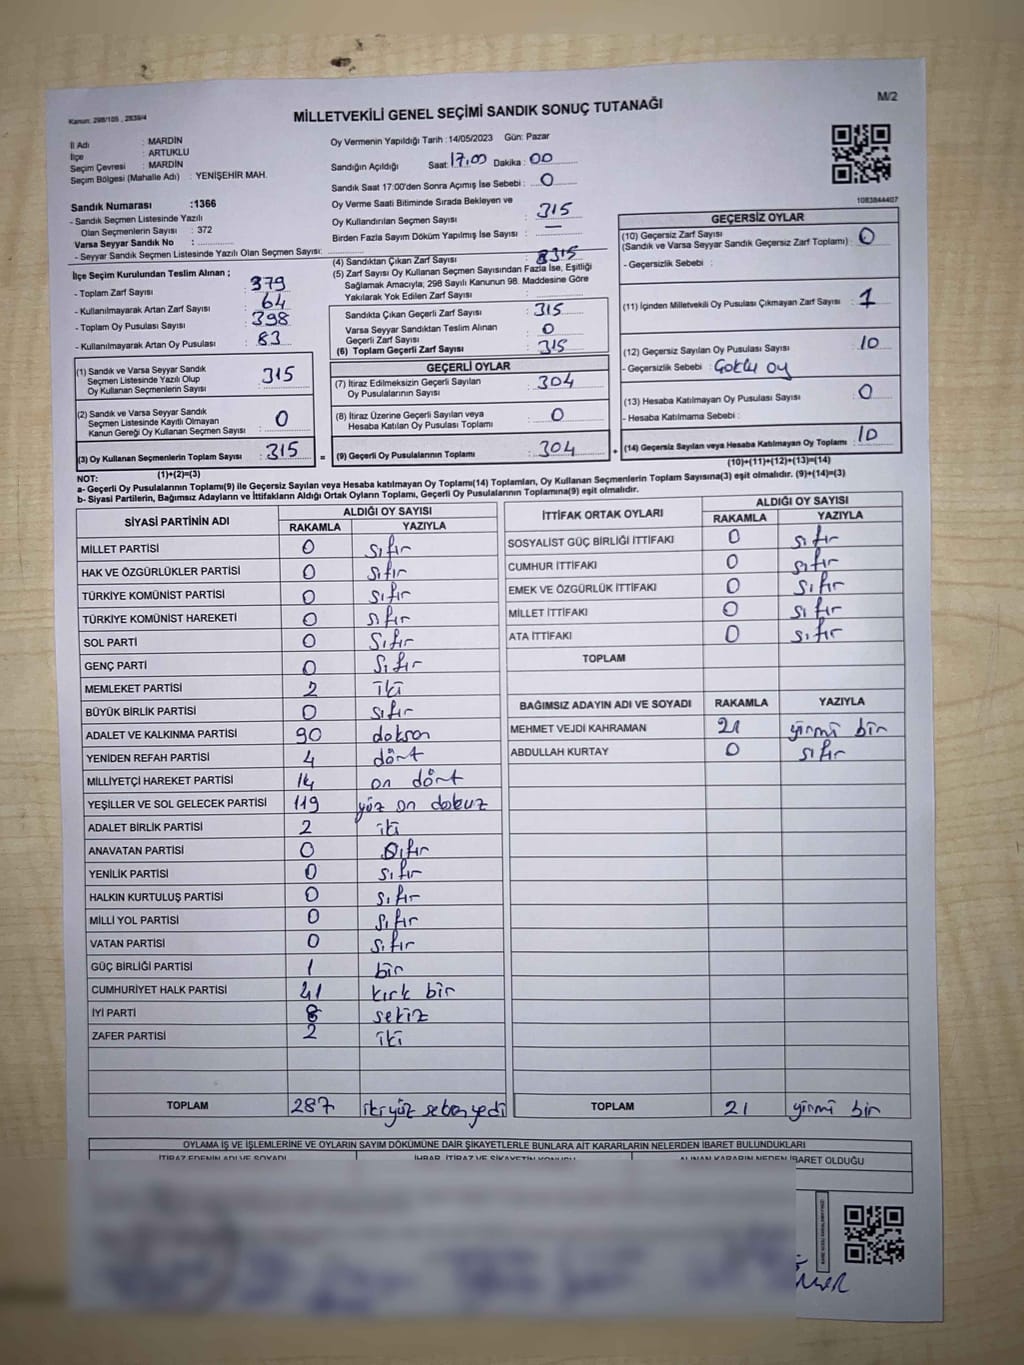 Kanun: 298/105 , 2839/4
MİLLETVEKİLİ GENEL SEÇİMİ SANDIK SONUÇ TUTANAĞI
M/2
İl Adı : MARDİN
İlçe : ARTUKLU
Seçim Çevresi : MARDİN
Seçim Bölgesi (Mahalle Adı) : YENİŞEHİR MAH.
Sandık Numarası :1366
- Sandık Seçmen Listesinde Yazılı
Olan Seçmenlerin Sayısı : 372
Varsa Seyyar Sandık No :
- Seyyar Sandık Seçmen Listesinde Yazılı Olan Seçmen Sayısı:
Oy Vermenin Yapıldığı Tarih :14/05/2023 Gün: Pazar
Sandığın Açıldığı Saat: 17.00 Dakika : 00
Sandık Saat 17:00'den Sonra Açımış İse Sebebi : 0
Oy Verme Saati Bitiminde Sırada Bekleyen ve
Oy Kullandırılan Seçmen Sayısı : 315
Birden Fazla Sayım Döküm Yapılmış İse Sayısı : —
1083844407
İlçe Seçim Kurulundan Teslim Alınan ;
- Toplam Zarf Sayısı : 379
- Kullanılmayarak Artan Zarf Sayısı : 64
- Toplam Oy Pusulası Sayısı : 398
- Kullanılmayarak Artan Oy Pusulası : 83
(1) Sandık ve Varsa Seyyar Sandık
Seçmen Listesinde Yazılı Olup
Oy Kullanan Seçmenlerin Sayısı : 315
(2) Sandık ve Varsa Seyyar Sandık
Seçmen Listesinde Kayıtlı Olmayan
Kanun Gereği Oy Kullanan Seçmen Sayısı : 0
(3) Oy Kullanan Seçmenlerin Toplam Sayısı : 315 =
(1)+(2)=(3)
(4) Sandıktan Çıkan Zarf Sayısı : 315
(5) Zarf Sayısı Oy Kullanan Seçmen Sayısından Fazla İse, Eşitliği
Sağlamak Amacıyla; 298 Sayılı Kanunun 98. Maddesine Göre
Yakılarak Yok Edilen Zarf Sayısı :
Sandıkta Çıkan Geçerli Zarf Sayısı : 315
Varsa Seyyar Sandıktan Teslim Alınan
Geçerli Zarf Sayısı : 0
(6) Toplam Geçerli Zarf Sayısı : 315
GEÇERLİ OYLAR
(7) İtiraz Edilmeksizin Geçerli Sayılan
Oy Pusulalarının Sayısı : 304
(8) İtiraz Üzerine Geçerli Sayılan veya
Hesaba Katılan Oy Pusulası Toplamı : 0
(9) Geçerli Oy Pusulalarının Toplamı : 304 +
GEÇERSİZ OYLAR
(10) Geçersiz Zarf Sayısı
(Sandık ve Varsa Seyyar Sandık Geçersiz Zarf Toplamı) : 0
- Geçersizlik Sebebi :
(11) İçinden Milletvekili Oy Pusulası Çıkmayan Zarf Sayısı : 1
(12) Geçersiz Sayılan Oy Pusulası Sayısı : 10
- Geçersizlik Sebebi : Çoklu oy
(13) Hesaba Katılmayan Oy Pusulası Sayısı : 0
- Hesaba Katılmama Sebebi :
(14) Geçersiz Sayılan veya Hesaba Katılmayan Oy Toplamı : 10
(10)+(11)+(12)+(13)=(14)
NOT:
a- Geçerli Oy Pusulalarının Toplamı(9) ile Geçersiz Sayılan veya Hesaba katılmayan Oy Toplamı(14) Toplamları, Oy Kullanan Seçmenlerin Toplam Sayısına(3) eşit olmalıdır. (9)+(14)=(3)
b- Siyasi Partilerin, Bağımsız Adayların ve İttifakların Aldığı Ortak Oyların Toplamı, Geçerli Oy Pusulalarının Toplamına(9) eşit olmalıdır.
SİYASİ PARTİNİN ADI ALDIĞI OY SAYISI
RAKAMLA YAZIYLA
MİLLET PARTİSİ 0 sıfır
HAK VE ÖZGÜRLÜKLER PARTİSİ 0 sıfır
TÜRKİYE KOMÜNİST PARTİSİ 0 sıfır
TÜRKİYE KOMÜNİST HAREKETİ 0 sıfır
SOL PARTİ 0 sıfır
GENÇ PARTİ 0 sıfır
MEMLEKET PARTİSİ 2 iki
BÜYÜK BİRLİK PARTİSİ 0 sıfır
ADALET VE KALKINMA PARTİSİ 90 doksan
YENİDEN REFAH PARTİSİ 4 dört
MİLLİYETÇİ HAREKET PARTİSİ 14 on dört
YEŞİLLER VE SOL GELECEK PARTİSİ 119 yüz on dokuz
ADALET BİRLİK PARTİSİ 2 iki
ANAVATAN PARTİSİ 0 sıfır
YENİLİK PARTİSİ 0 sıfır
HALKIN KURTULUŞ PARTİSİ 0 sıfır
MİLLİ YOL PARTİSİ 0 sıfır
VATAN PARTİSİ 0 sıfır
GÜÇ BİRLİĞİ PARTİSİ 1 bir
CUMHURİYET HALK PARTİSİ 41 kırk bir
İYİ PARTİ 8 sekiz
ZAFER PARTİSİ 2 iki
TOPLAM 287 iki yüz seksen yedi
İTTİFAK ORTAK OYLARI ALDIĞI OY SAYISI
RAKAMLA YAZIYLA
SOSYALİST GÜÇ BİRLİĞİ İTTİFAKI 0 sıfır
CUMHUR İTTİFAKI 0 sıfır
EMEK VE ÖZGÜRLÜK İTTİFAKI 0 sıfır
MİLLET İTTİFAKI 0 sıfır
ATA İTTİFAKI 0 sıfır
TOPLAM
BAĞIMSIZ ADAYIN ADI VE SOYADI RAKAMLA YAZIYLA
MEHMET VEJDİ KAHRAMAN 21 yirmi bir
ABDULLAH KURTAY 0 sıfır
TOPLAM 21 yirmi bir
OYLAMA İŞ VE İŞLEMLERİNE VE OYLARIN SAYIM DÖKÜMÜNE DAİR ŞİKAYETLERLE BUNLARA AİT KARARLARIN NELERDEN İBARET BULUNDUKLARI
İTİRAZ EDENİN ADI VE SOYADI İHBAR, İTİRAZ VE ŞİKAYETİN KONUSU ALINAN KARARIN NEDEN İBARET OLDUĞU